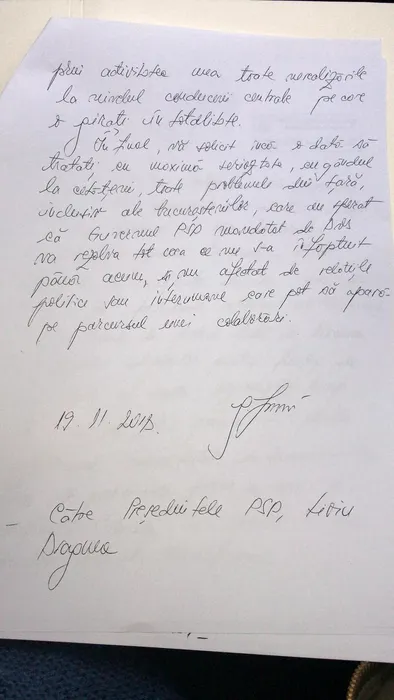 prin activitatea mea toate nerealizările
la nivelul conducerii centrale pe care
o pilotați în totalitate.
În final, vă solicit încă o dată să
tratați cu maximă seriozitate, cu gândul
la cetățeni, toate problemele din țară,
inclusiv ale bucureștenilor, care au sperat
că Guvernul PSD mandatat de Dvs
va rezolva tot ceea ce nu s-a înfăptuit
până acum, și nu afectat de relațiile
politice sau interumane care pot să apară
pe parcursul unei colaborări.
19.11.2018.
Către Președintele PSD, Liviu
Dragnea